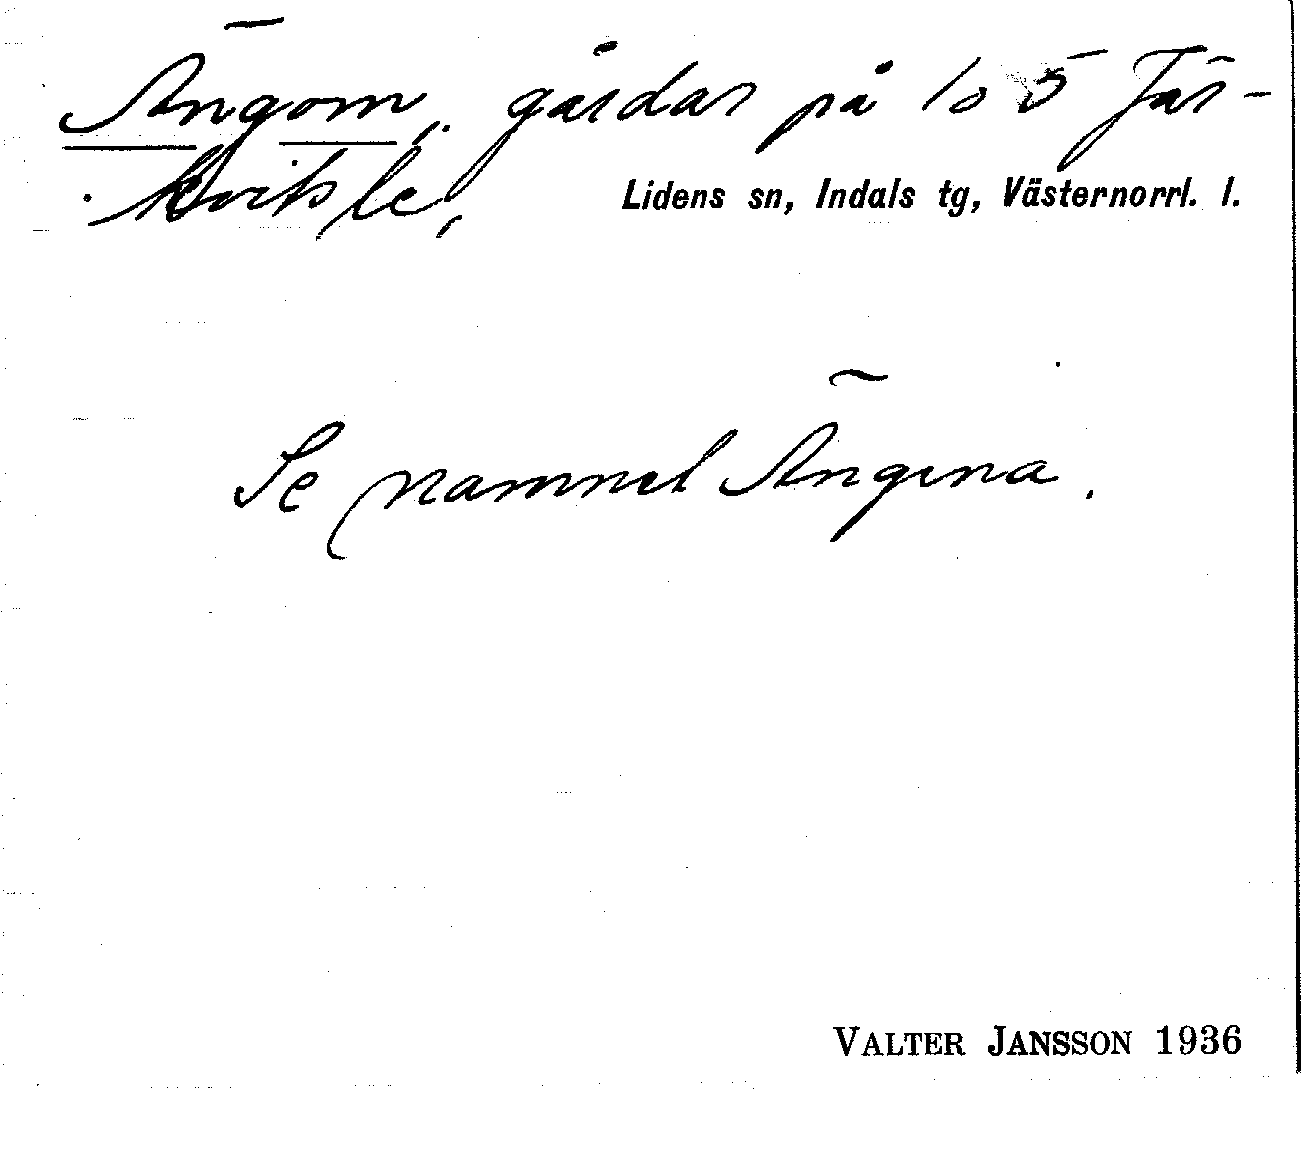 Ängom, gårdar på 1o 5 Jär-
kvitsle,
Lidens sn, Indals tg, Västernorrl. l.
Se namnet Ängena.
VALTER JANSSON 1936